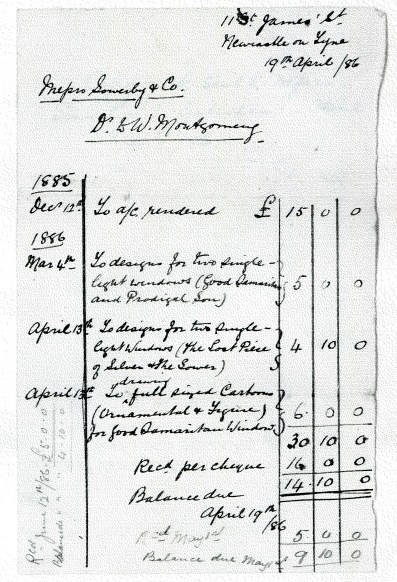 11 St. James' St
Newcastle on Tyne
19th April /86
Messrs Sowerby & Co.
Dr to W. Montgomery.
1885
Decr 12th To a/c rendered £ 15 0 0
1886
Mar 4th To designs for two single-
light windows (Good Samaritan 5 0 0
and Prodigal Son)
April 13th To designs for two single-
light Windows (the Lost Piece 4 10 0
of Silver & the Sower)
April 13th To drawing full sized Cartoons
(Ornamental & Figure) 6 0 0
for Good Samaritan Window
30 10 0
Recd per cheque 16 0 0
14 10 0
Balance due
April 19th
/86
Recd May 1st 5 0 0
Balance due May 1st 9 10 0
Recd June 12th /86 £5 0 0
Balance due " " 4 10 0